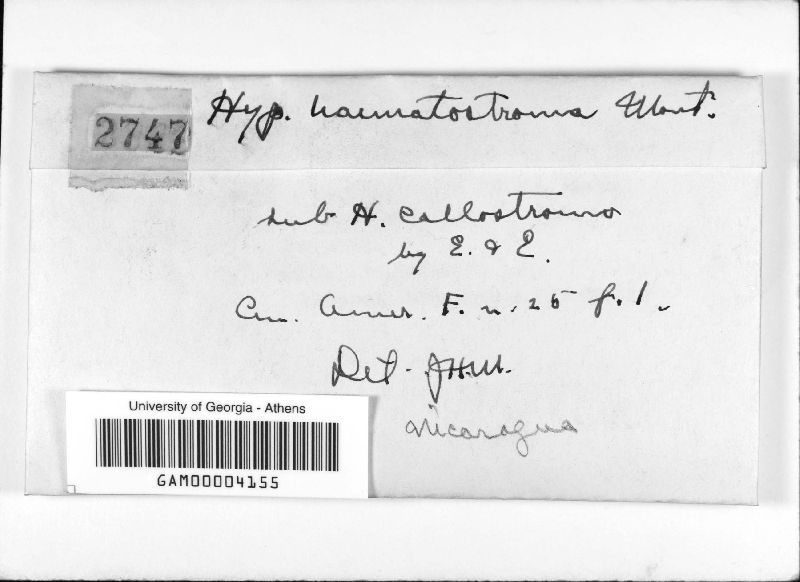 2747
Hyp. haematostroma Mont.
sub H. callostroma
by E. & E.
Cen. Amer. F. n. 25 f. 1.
Det. J.H.M.
Nicaragua
University of Georgia - Athens
GAM00004155